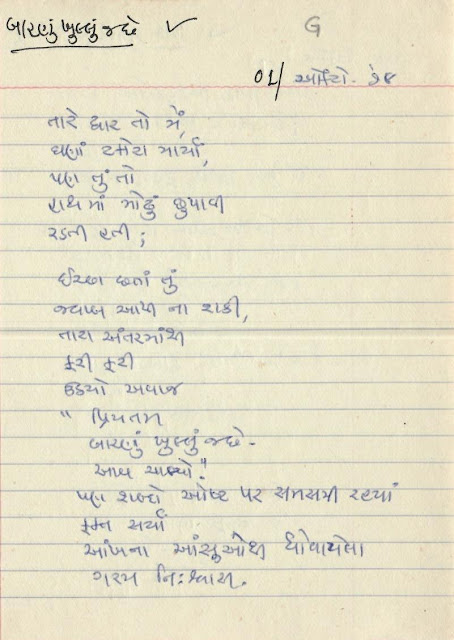 બારણું ખુલ્લું જ છે ✓
G
01/ ઓક્ટો. ૭૪
તારે દ્વાર તો મેં,
ઘણાં ટકોરા માર્યાં,
પણ તું તો
હાથમાં મોઢું છુપાવી
રડતી હતી;
ઈચ્છા છતાં તું
જવાબ આપી ના શકી,
તારા અંતરમાંથી
ફરી ફરી
ઉઠયો અવાજ
" પ્રિયતમ
બારણું ખુલ્લું જ છે.
આવ ચાલ્યો!"
પણ શબ્દો ઓષ્ટ પર સમસમી રહયાં
ફક્ત સર્યાં
આંખના આંસુઓથી ધોવાયેલા
ગરમ નિઃશ્વાસ.